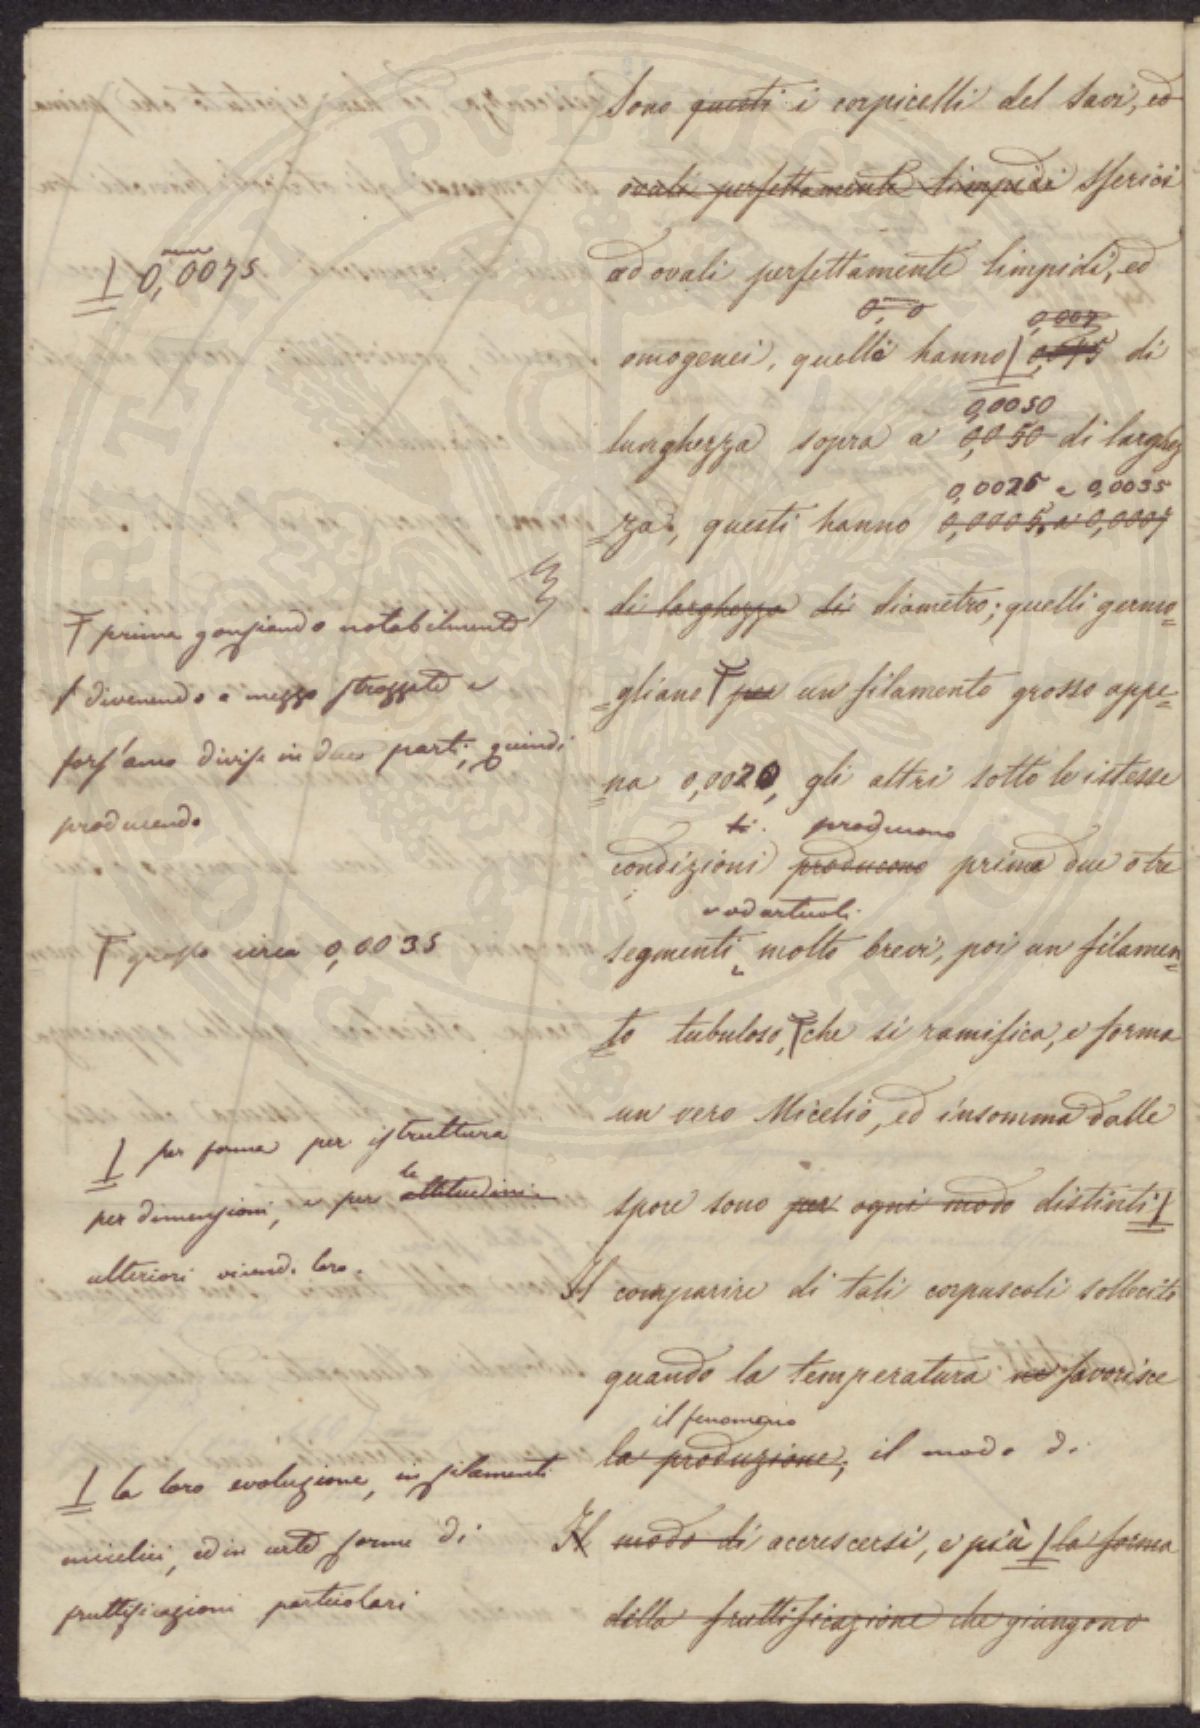 Sono questi i corpicelli del Savi, ed
ovali perfettamente limpidi sferici
ad ovali perfettamente limpidi, ed
0,0 0,007
omogenei, quelli hanno di
0,0050
lunghezza sopra a 0,050 di larghez
0,0025 e 0,0035
za, questi hanno 0,0005, a 0,0007
di larghezza di diametro; quelli germo
gliano per un filamento grosso appe
na 0,0020, gli altri sotto le istesse
ti. producono
condizioni producono prima due o tre
ed articoli
segmenti molto brevi, poi un filamen
to tubuloso, che si ramifica, e forma
un vero Micelio, ed insomma dalle
spore sono per ogni modo distinti
Il comparire di tali corpuscoli sollecito
quando la temperatura ne favorisce
il fenomeno
la produzione, il modo di
Il modo di accrescersi, e più la forma
della fruttificazione che giungono
mm
0,0075
prima gonfiando notabilmente
divenendo a mezzo strozzate e
fors'anco divise in due parti, quindi
producendo
grosso circa 0,0035
per forma per istruttura
le
per dimensioni, e per attitudini
ulteriori vicende loro.
la loro evoluzione, in filamenti
micelici, ed in certe forme di
fruttificazioni particolari
PUBLIC